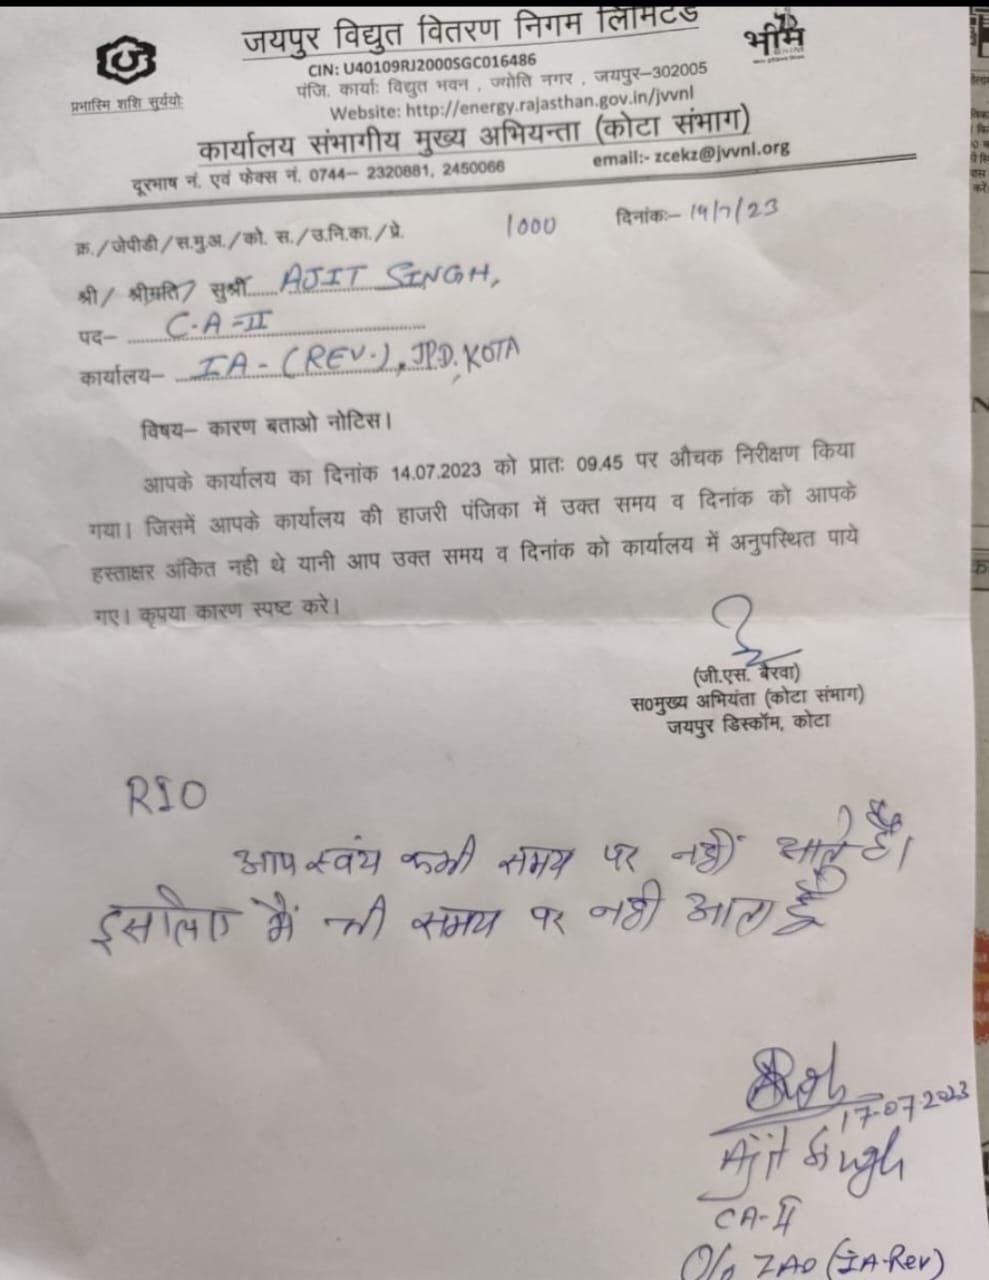 जयपुर विद्युत वितरण निगम लिमिटेड
भीम
CIN: U40109RJ2000SGC016486
पंजि. कार्याः विद्युत भवन , ज्योति नगर , जयपुर–302005
प्रभास्मि शशि सूर्ययोः
Website: http://energy.rajasthan.gov.in/jvvnl
कार्यालय संभागीय मुख्य अभियन्ता (कोटा संभाग)
दूरभाष नं. एवं फेक्स नं. 0744– 2320881, 2450066 email:- zcekz@jvvnl.org
क्र./जेपीडी/स.मु.अ./को. स./उ.नि.का./प्रे. 1000 दिनांकः– 14/7/23
श्री/ श्रीमति/ सुश्री...... AJIT SINGH,
पद– C.A-II
कार्यालय– IA-(REV.), JP.D. KOTA
विषय– कारण बताओ नोटिस।
आपके कार्यालय का दिनांक 14.07.2023 को प्रातः 09.45 पर औचक निरीक्षण किया
गया। जिसमें आपके कार्यालय की हाजरी पंजिका में उक्त समय व दिनांक को आपके
हस्ताक्षर अंकित नही थे यानी आप उक्त समय व दिनांक को कार्यालय में अनुपस्थित पाये
गए। कृपया कारण स्पष्ट करे।
(जी.एस. बैरवा)
स0मुख्य अभियंता (कोटा संभाग)
जयपुर डिस्कॉम, कोटा
RIO
आप स्वंय कभी समय पर नहीं आते है।
इसलिए मैं भी समय पर नही आता हूँ
17-07-2023
Ajit Singh
CA-II
O/o ZAO (IA-Rev)